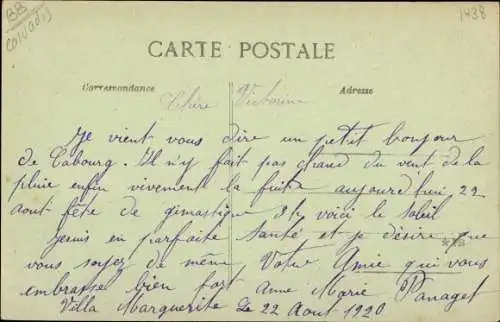 BB
Calvados
1438
CARTE POSTALE
Correspondance
Adresse
Chère Victorine
Je vient vous dire un petit bonjour
de Cabourg. Il n'y fait pas chaud du vent de la
pluie enfin vivement la fuite aujourd'hui 22
aout fête de gimastique voici le soleil
Je suis en parfaite santé et je désire que
vous soyez de même Votre Amie qui vous
embrasse bien fort Anne Marie Panaget
Villa Marguerite Le 22 Aout 1920